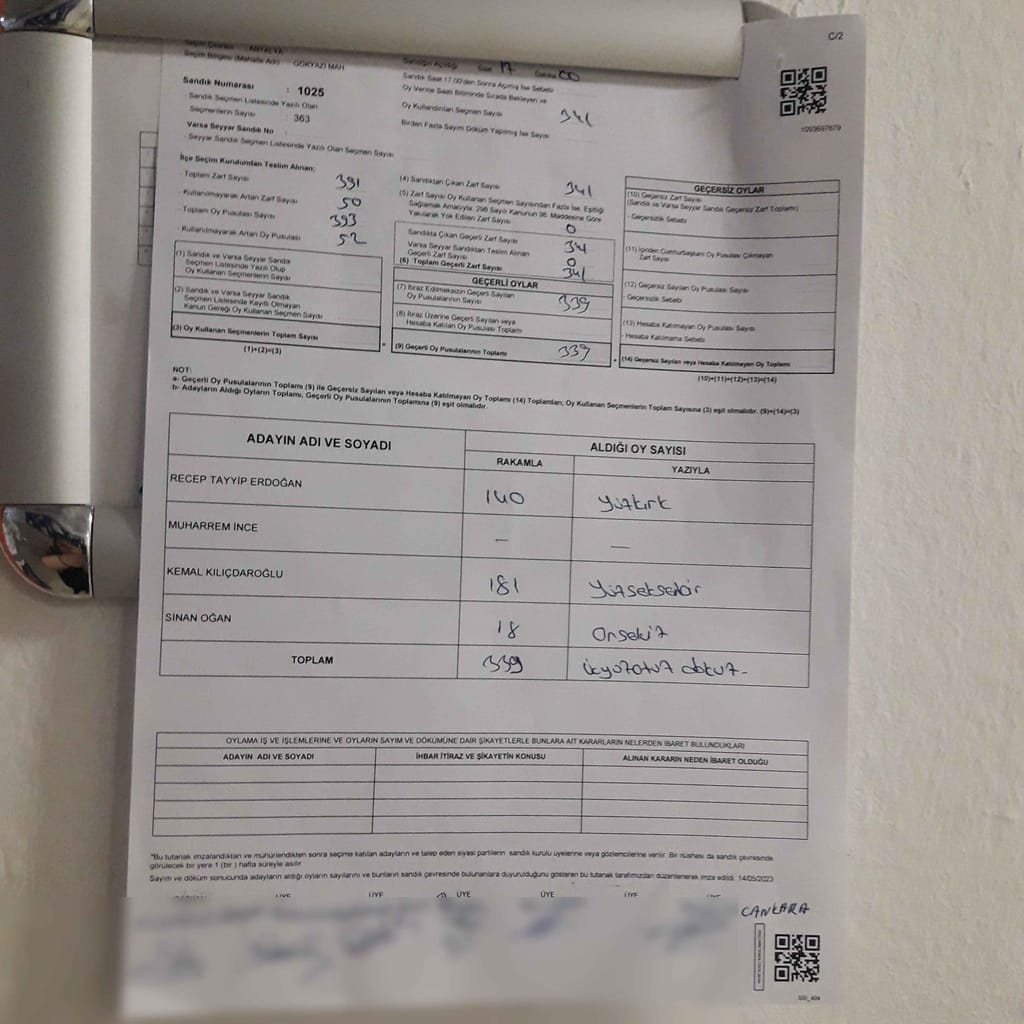 C/2
Seçim Çevresi : ANTALYA
Seçim Bölgesi (Mahalle Adı) : GÖKYAZI MAH
Sandığın Açıldığı Saat 17 Dakika 00
Sandık Saat 17:00'den Sonra Açılmış İse Sebebi
Sandık Numarası : 1025
Oy Verme Saati Bitiminde Sırada Bekleyen ve
Oy Kullandırılan Seçmen Sayısı 341
Sandık Seçmen Listesinde Yazılı Olan
Seçmenlerin Sayısı : 363
Birden Fazla Sayım Döküm Yapılmış İse Sayısı
1093697679
Varsa Seyyar Sandık No :
- Seyyar Sandık Seçmen Listesinde Yazılı Olan Seçmen Sayısı
İlçe Seçim Kurulundan Teslim Alınan;
- Toplam Zarf Sayısı 391
- Kullanılmayarak Artan Zarf Sayısı 50
- Toplam Oy Pusulası Sayısı 393
- Kullanılmayarak Artan Oy Pusulası 52
(1) Sandık ve Varsa Seyyar Sandık
Seçmen Listesinde Yazılı Olup
Oy Kullanan Seçmenlerin Sayısı
(2) Sandık ve Varsa Seyyar Sandık
Seçmen Listesinde Kayıtlı Olmayan
Kanun Gereği Oy Kullanan Seçmen Sayısı
(3) Oy Kullanan Seçmenlerin Toplam Sayısı
(1)+(2)=(3)
(4) Sandıktan Çıkan Zarf Sayısı 341
(5) Zarf Sayısı Oy Kullanan Seçmen Sayısından Fazla İse, Eşitliği
Sağlamak Amacıyla; 298 Sayılı Kanunun 98. Maddesine Göre
Yakılarak Yok Edilen Zarf Sayısı 0
Sandıkta Çıkan Geçerli Zarf Sayısı 341
Varsa Seyyar Sandıktan Teslim Alınan
Geçerli Zarf Sayısı 0
(6) Toplam Geçerli Zarf Sayısı 341
GEÇERLİ OYLAR
(7) İtiraz Edilmeksizin Geçerli Sayılan
Oy Pusulalarının Sayısı 339
(8) İtiraz Üzerine Geçerli Sayılan veya
Hesaba Katılan Oy Pusulası Toplamı
(9) Geçerli Oy Pusulalarının Toplamı 339
=
+
GEÇERSİZ OYLAR
(10) Geçersiz Zarf Sayısı
(Sandık ve Varsa Seyyar Sandık Geçersiz Zarf Toplamı)
- Geçersizlik Sebebi
(11) İçinden Cumhurbaşkanı Oy Pusulası Çıkmayan
Zarf Sayısı
(12) Geçersiz Sayılan Oy Pusulası Sayısı
- Geçersizlik Sebebi
(13) Hesaba Katılmayan Oy Pusulası Sayısı
- Hesaba Katılmama Sebebi
(14) Geçersiz Sayılan veya Hesaba Katılmayan Oy Toplamı
(10)+(11)+(12)+(12)=(14)
NOT:
a- Geçerli Oy Pusulalarının Toplamı (9) ile Geçersiz Sayılan veya Hesaba Katılmayan Oy Toplamı (14) Toplamları, Oy Kullanan Seçmenlerin Toplam Sayısına (3) eşit olmalıdır. (9)+(14)=(3)
b- Adayların Aldığı Oyların Toplamı, Geçerli Oy Pusulalarının Toplamına (9) eşit olmalıdır.
ADAYIN ADI VE SOYADI
ALDIĞI OY SAYISI
RAKAMLA YAZIYLA
RECEP TAYYİP ERDOĞAN 140 yüzkırk
MUHARREM İNCE — —
KEMAL KILIÇDAROĞLU 181 yüzseksenbir
SİNAN OĞAN 18 Onsekiz
TOPLAM 339 üçyüzotuz dokuz-
OYLAMA İŞ VE İŞLEMLERİNE VE OYLARIN SAYIM VE DÖKÜMÜNE DAİR ŞİKAYETLERLE BUNLARA AİT KARARLARIN NELERDEN İBARET BULUNDUKLARI
ADAYIN ADI VE SOYADI İHBAR İTİRAZ VE ŞİKAYETİN KONUSU ALINAN KARARIN NEDEN İBARET OLDUĞU
"Bu tutanak imzalandıktan ve mühürlendikten sonra seçime katılan adayların ve talep eden siyasi partilerin sandık kurulu üyelerine veya gözlemcilerine verilir. Bir nüshası da sandık çevresinde
görülecek bir yere 1 (bir ) hafta süreyle asılır.
Sayım ve döküm sonucunda adayların aldığı oyların sayılarını ve bunların sandık çevresinde bulunanlara duyurulduğunu gösteren bu tutanak tarafımızdan düzenlenerek imza edildi. 14/05/2023
ÜYE ÜYE ÜYE ÜYE ÜYE ÜYE
CANKARA